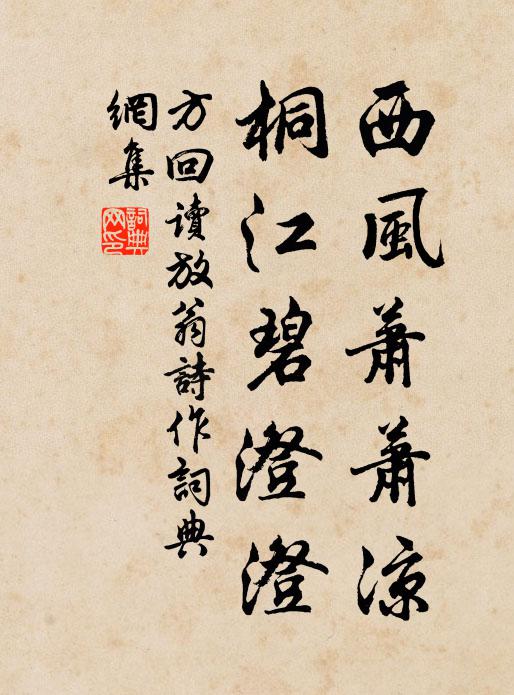 西風蕭蕭涼
桐江碧澄澄
方回讀放翁詩作詞典
網集
詞典網印